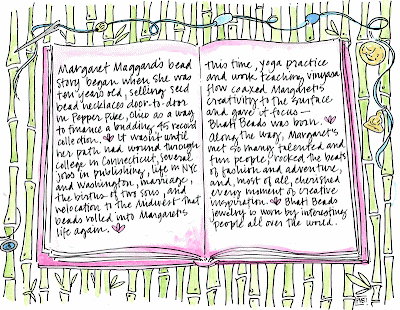 Margaret Maggard's bead
story began when she was
ten years old, selling seed
bead necklaces door-to-door
in Pepper Pike, Ohio as a way
to finance a budding 45 record
collection. It wasn't until
her path had wound through
college in Connecticut, several
jobs in publishing, life in NYC
and Washington, marriage,
the births of two sons, and
relocation to the Midwest that
beads rolled into Margaret's
life again.
This time, yoga practice
and work teaching vinyasa
flow coaxed Margaret's
creativity to the surface
and gave it focus —
Bhati Beads was born.
Along the way, Margaret's
met so many talented and
fun people, rocked the beats
of fashion and adventure,
and, most of all, cherished
every moment of creative
inspiration. Bhati Beads
jewelry is worn by interesting
people all over the world.